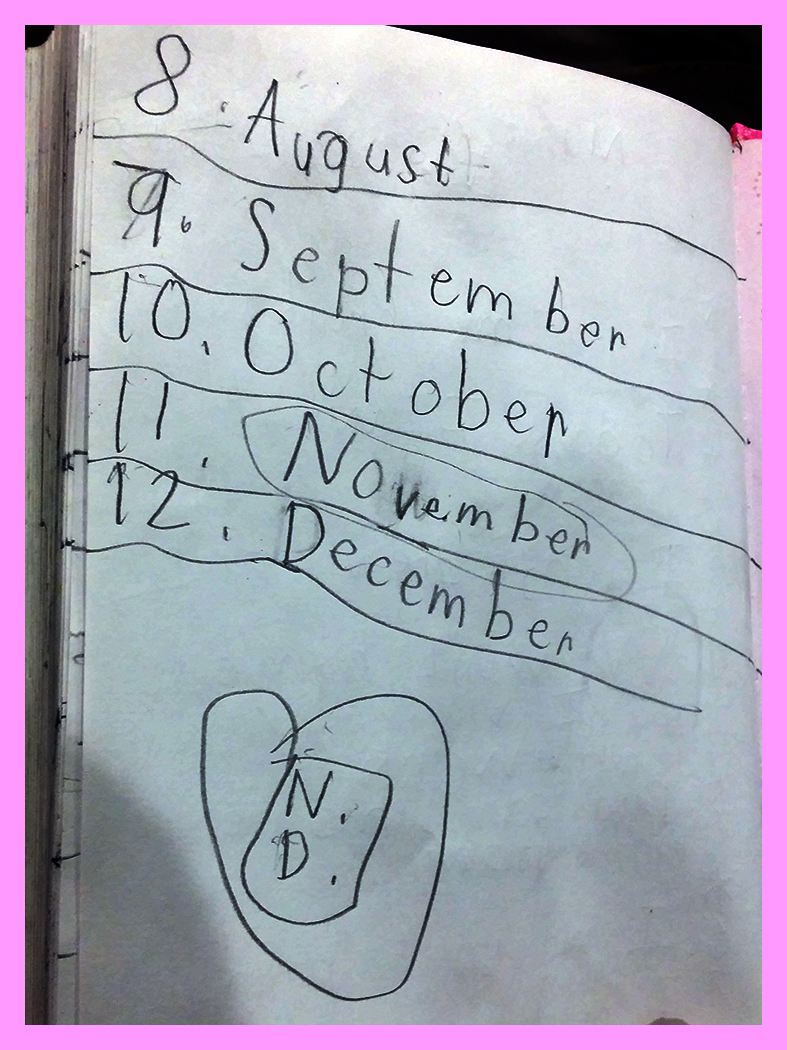 8. August
9. September
10. October
11. November
12. December
N.
D.